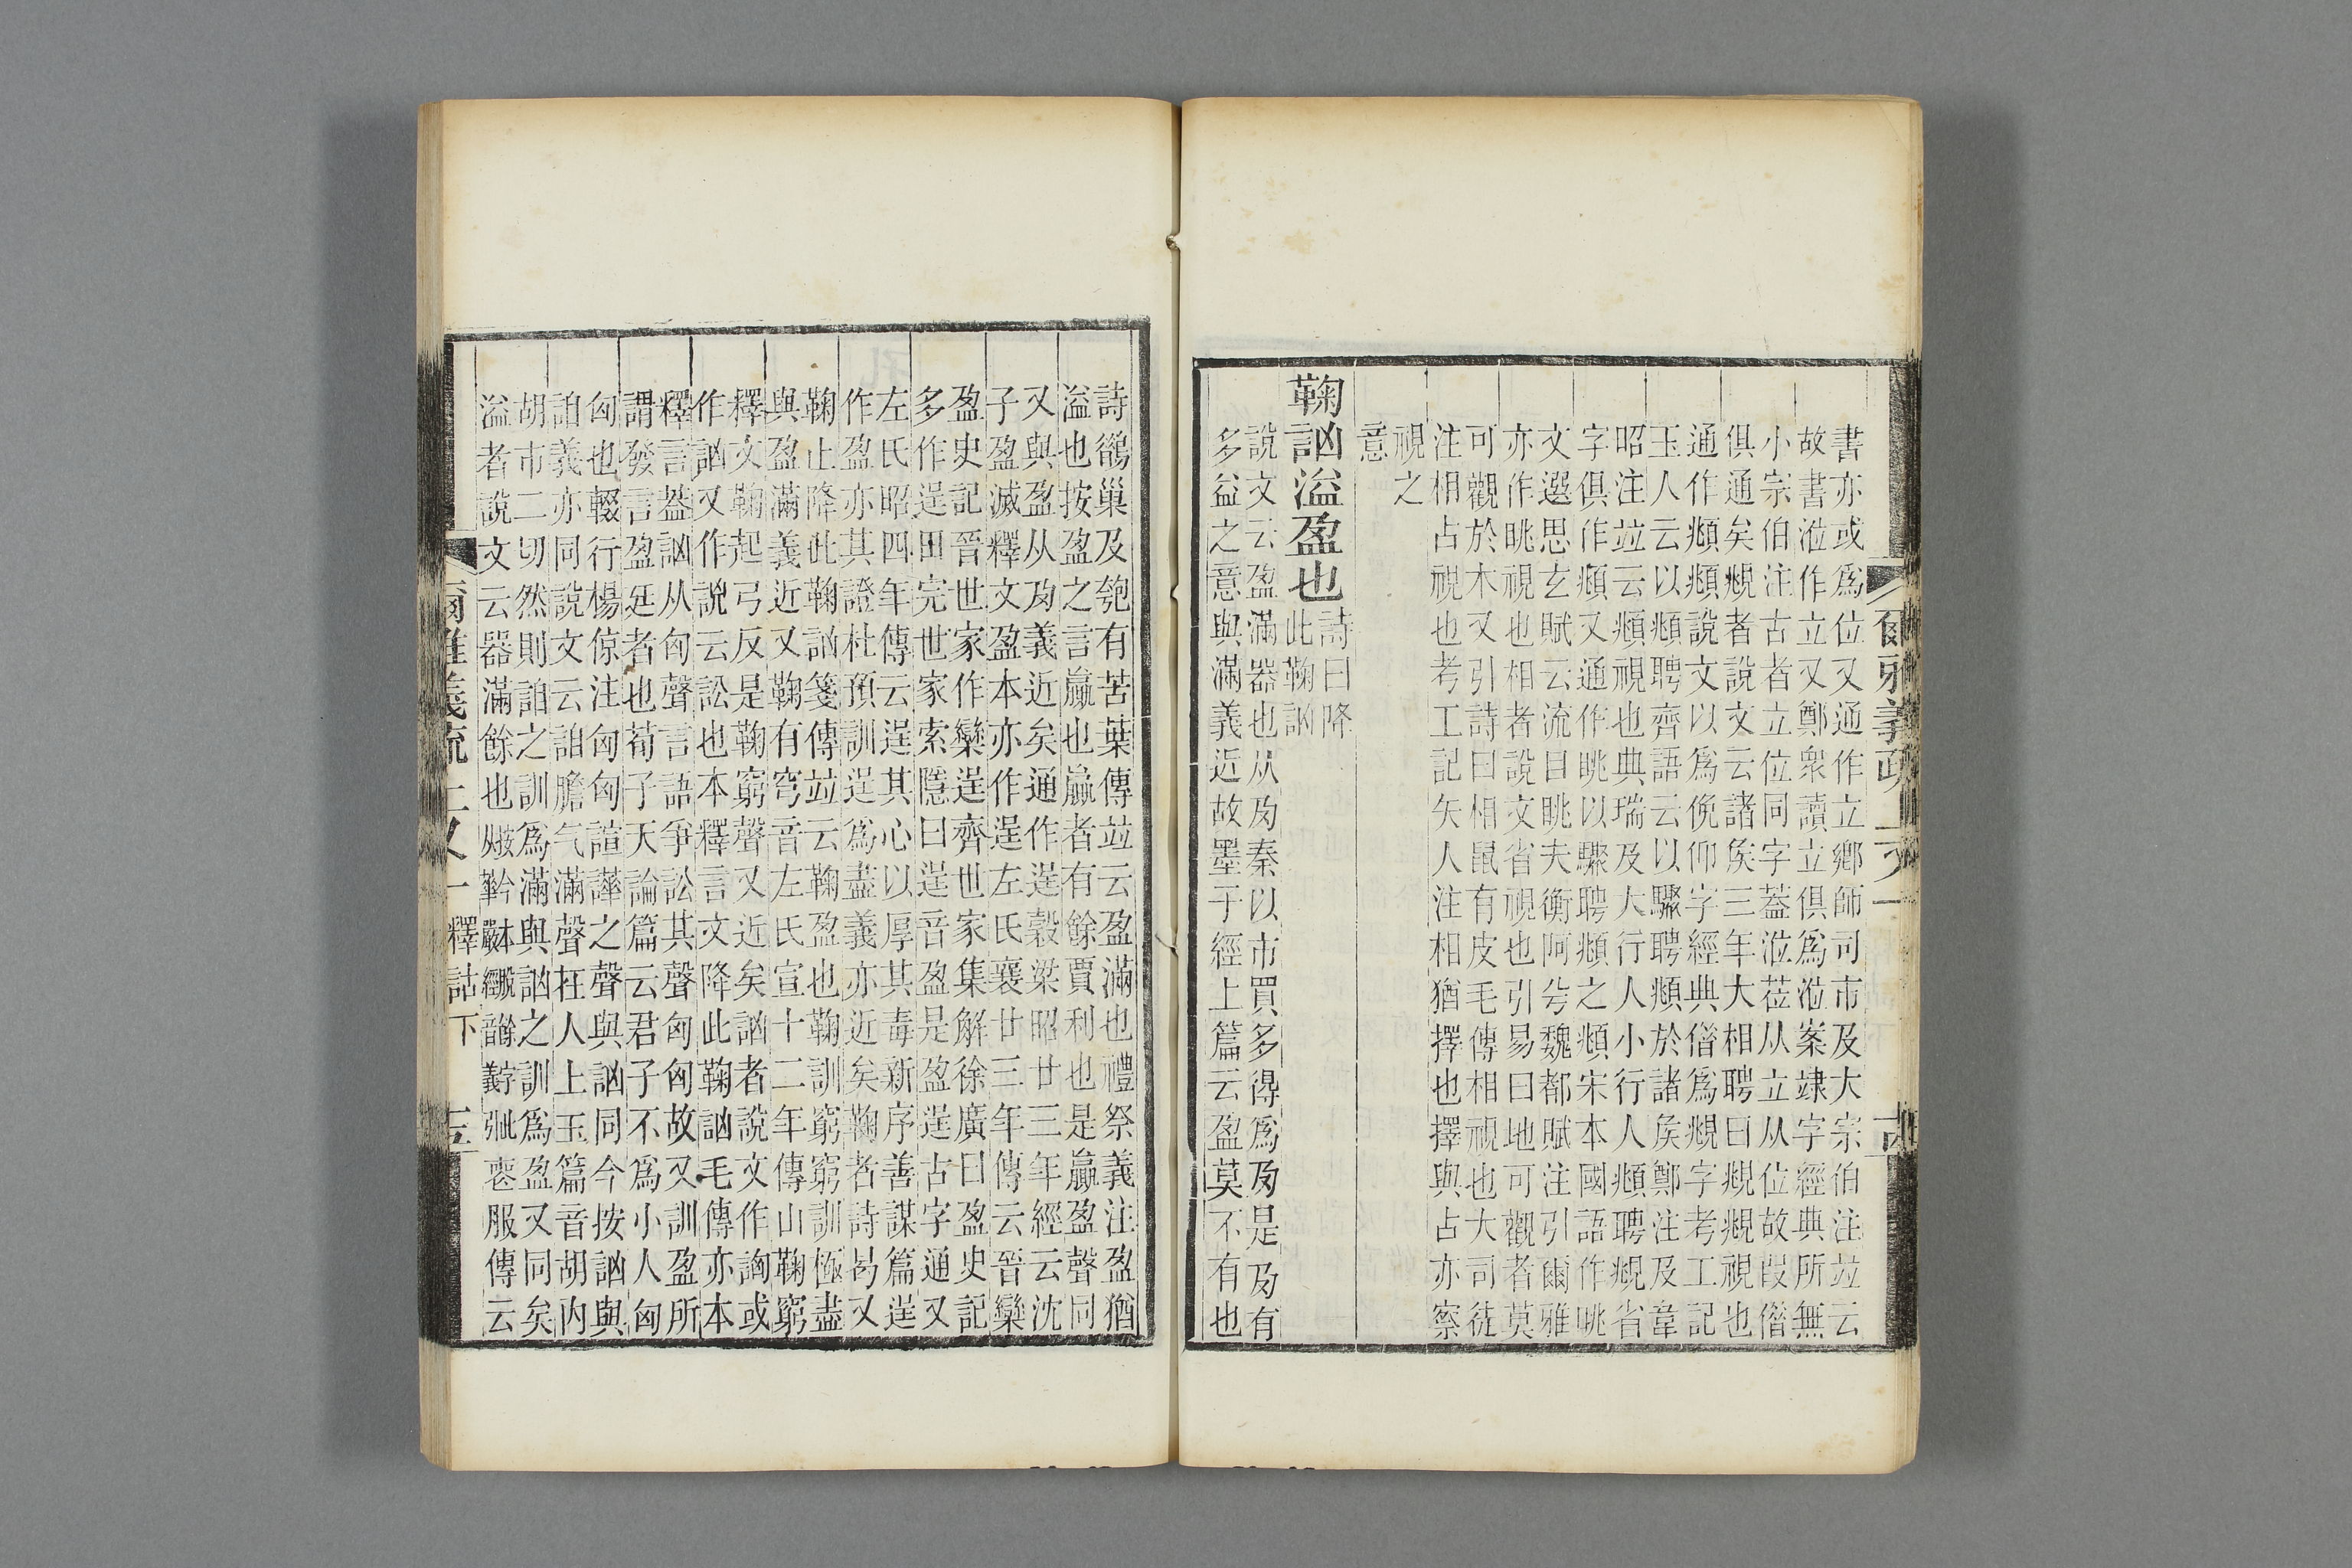 書亦或爲位又通作立鄉師司市及大宗伯注竝云
故書涖作立又鄭衆讀立俱爲涖案竦字經典所無
小宗伯注古者立位同字蓋涖莅从立从位故叚偕
俱通矣覜者說文云諸矦三年大相聘曰覜覜視也
通作頫頫說文以爲俛仰字經典偕爲覜字考工記
玉人云以頫聘齊語云以驟聘頫於諸矦鄭注及韋
昭注竝云頫視也典瑞及大行人小行人頫聘覜省
字俱作頫又通作眺以驟聘頫之頫宋本國語作眺
文選思玄賦云流目眺夫衡阿兮魏都賦注引爾雅
亦作眺視也相者說文省視也引易曰地可觀者莫
可觀於木又引詩曰相鼠有皮毛傳相視也大司徒
注相占視也考工記矢人注相猶擇也擇與占亦察
視之
意
鞠訩溢盈也
詩曰降
此鞠訩
說文云盈滿器也从夃秦以市買多得爲夃是夃有
多益之意與滿義近故墨子經上篇云盈莫不有也
爾雅義疏 上又一 十四
詩鵲巢及匏有苦葉傳竝云盈滿也禮祭義注盈猶
溢也按盈之言贏也贏者有餘賈利也是贏盈聲同
又與盈从夃義近矣通作逞穀梁昭廿三年經云沈
子盈滅釋文盈本亦作逞左氏襄廿三年傳云晉欒
盈史記晉世家作欒逞齊世家集解徐廣曰盈史記
多作逞田完世家索隱曰逞音盈是盈逞古字通又
左氏昭四年傳云逞其心以厚其毒新序善謀篇逞
作盈亦其證杜預訓逞爲盡義亦近矣鞠者詩曷又
鞠止降此鞠訩箋傳竝云鞠盈也鞠訓窮窮訓極盡
與盈滿義近又鞠有穹音左氏宣十二年傳山鞠窮
釋文鞠起弓反是鞠窮聲又近矣訩者說文作訩或
作訩又作說云訟也本釋言文降此鞠訩毛傳亦本
釋言葢訩从匈聲言語爭訟其聲匈匈故又訓盈所
謂發言盈廷者也荀子天論篇云君子不爲小人匈
匈也輟行楊倞注匈匈諠譁之聲與訩同今按訩與
詯義亦同說文云詯膽气滿聲在人上玉篇音胡內
胡市二切然則詯之訓爲滿與訩之訓爲盈又同矣
溢者說文云器滿餘也服傳云
爾雅義疏 上又一 釋詁下 十五